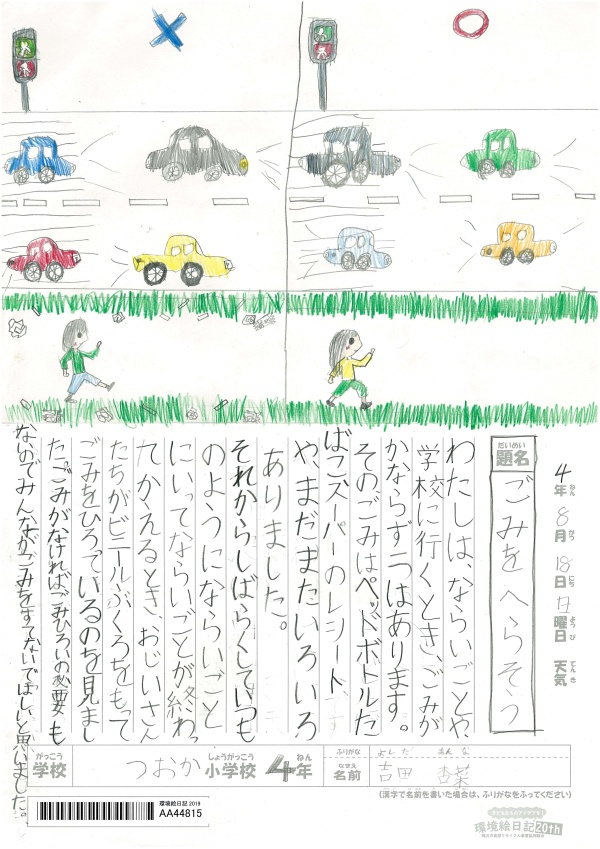 4年 8月 18日 日曜日 天気
ねん がつ にち ようび てんき
だいめい
題名 ごみをへらそう
わたしは、ならいごとや、
学校に行くとき、ごみが
かならず一つはあります。
そのごみはペッドボトルた
ばこスーパーのレシート、
や、まだまたいろいろ
ありました。
それからしばらくしていつも
のようにならいごと
にいってならいごとが終わっ
てかえるとき、おじいさん
たちがビニールぶくろをもって
ごみをひろっているのを見まし
たごみがなければごみひろいの必要も
ないのでみんながごみをすてないでほしいと思いました。
がっこう しょうがっこう ねん
学校 つおか 小学校 4年
ふりがな よしだ あんな
なまえ
名前 吉田 杏菜
(漢字で名前を書いた場合は、ふりがなをふってください)
環境絵日記 2019
AA44815
環境絵日記 20th